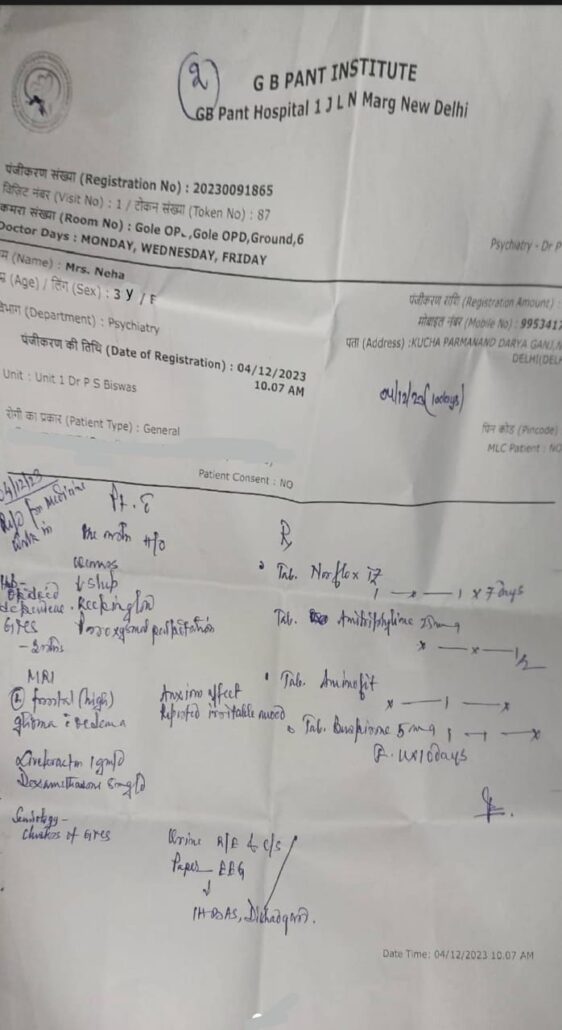 2
G B PANT INSTITUTE
GB Pant Hospital 1 J L N Marg New Delhi
पंजीकरण संख्या (Registration No) : 20230091865
विज़िट नंबर (Visit No) : 1 / टोकन संख्या (Token No) : 87
कमरा संख्या (Room No) : Gole OPD,Gole OPD,Ground,6
Doctor Days : MONDAY, WEDNESDAY, FRIDAY
Psychiatry - Dr P
(Name) : Mrs. Neha
(Age) / लिंग (Sex) : 3 y / F
(Department) : Psychiatry
पंजीकरण की तिथि (Date of Registration) : 04/12/2023
10.07 AM
Unit : Unit 1 Dr P S Biswas
रोगी का प्रकार (Patient Type) : General
पंजीकरण राशि (Registration Amount) :
मोबाइल नंबर (Mobile No) : 9953412
पता (Address) :KUCHA PARMANAND DARYA GANJ,N
DELHI(DELH
04/12/23 (10days)
पिन कोड (Pincode)
MLC Patient : NO
Patient Consent : NO
04/12/23
for Medicine
H/O
sleep
palpitation
dependence
GTCS
MRI
frontal (high)
glioma oedema
Levetiracetam 1gm/d
Dexamethasone
Semiology -
clusters of GTCS
Anxious affect
Reported irritable mood
Urine R/E & c/s
Paper EEG
↓
IHBAS, Dilshad garden.
R
Tab. Norflox TZ
1 — x — 1 x 7 days
Tab. Amitriptyline 25mg
x — x — 1/2
Tab. Aminofit
x — 1 — x
Tab. Buspirone 5 mg 1 — 1 — x
10days
Date Time: 04/12/2023 10.07 AM